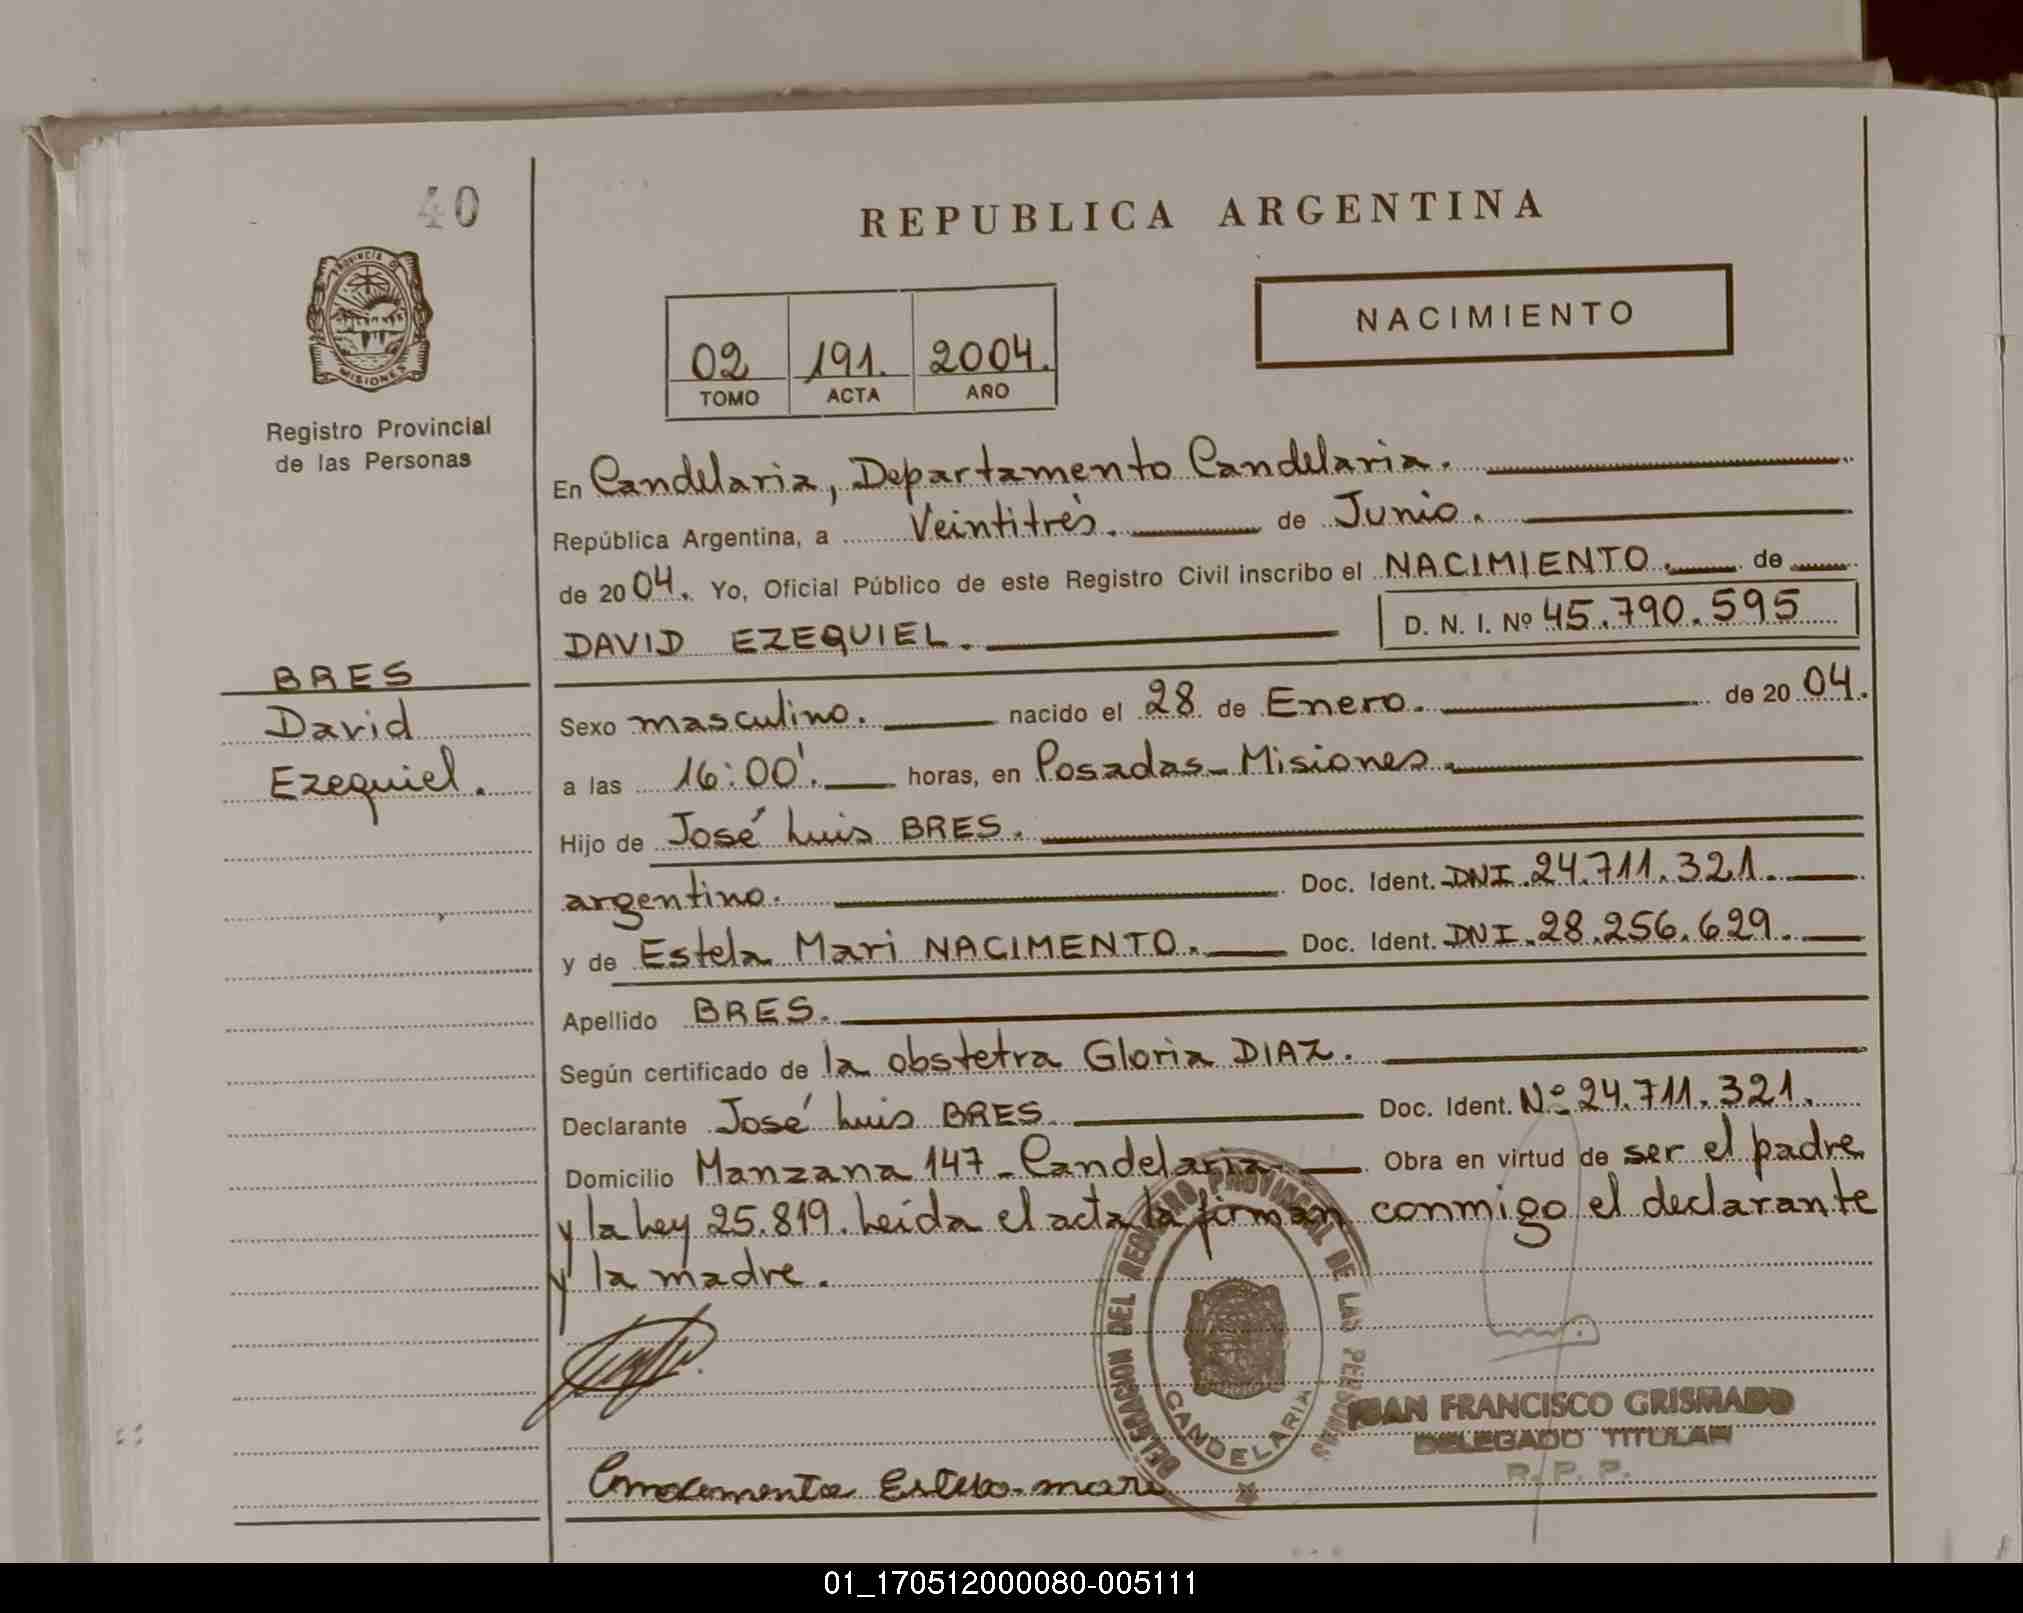 40
REPUBLICA ARGENTINA
PROVINCIA DE
MISIONES
NACIMIENTO
02 191. 2004.
TOMO ACTA AÑO
Registro Provincial
de las Personas
En Candelaria, Departamento Candelaria.
República Argentina, a Veintitrés. de Junio.
de 2004. Yo, Oficial Público de este Registro Civil inscribo el NACIMIENTO. de
DAVID EZEQUIEL. D. N. I. Nº 45.790.595
BRES
David
Ezequiel.
Sexo masculino. nacido el 28 de Enero. de 2004.
a las 16:00'. horas, en Posadas - Misiones.
Hijo de José Luis BRES.
argentino. Doc. Ident. DNI. 24.711.321.
y de Estela Mari NACIMENTO. Doc. Ident. DNI. 28.256.629.
Apellido BRES.
Según certificado de la obstetra Gloria DIAZ.
Declarante José Luis BRES. Doc. Ident. Nº 24.711.321.
Domicilio Manzana 147 - Candelaria. Obra en virtud de ser el padre
y la Ley 25.819. Leída el acta la firman conmigo el declarante
y la madre.
DELEGACION DEL REGISTRO PROVINCIAL DE LAS PERSONAS
CANDELARIA
JUAN FRANCISCO GRISMADO
DELEGADO TITULAR
R. P. P.
Estela mari
01_170512000080-005111